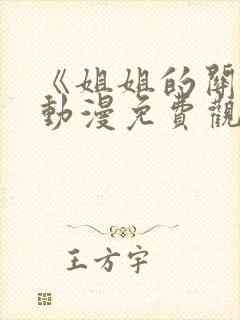 《姐姐的闈
動漫免費觀
王方宇